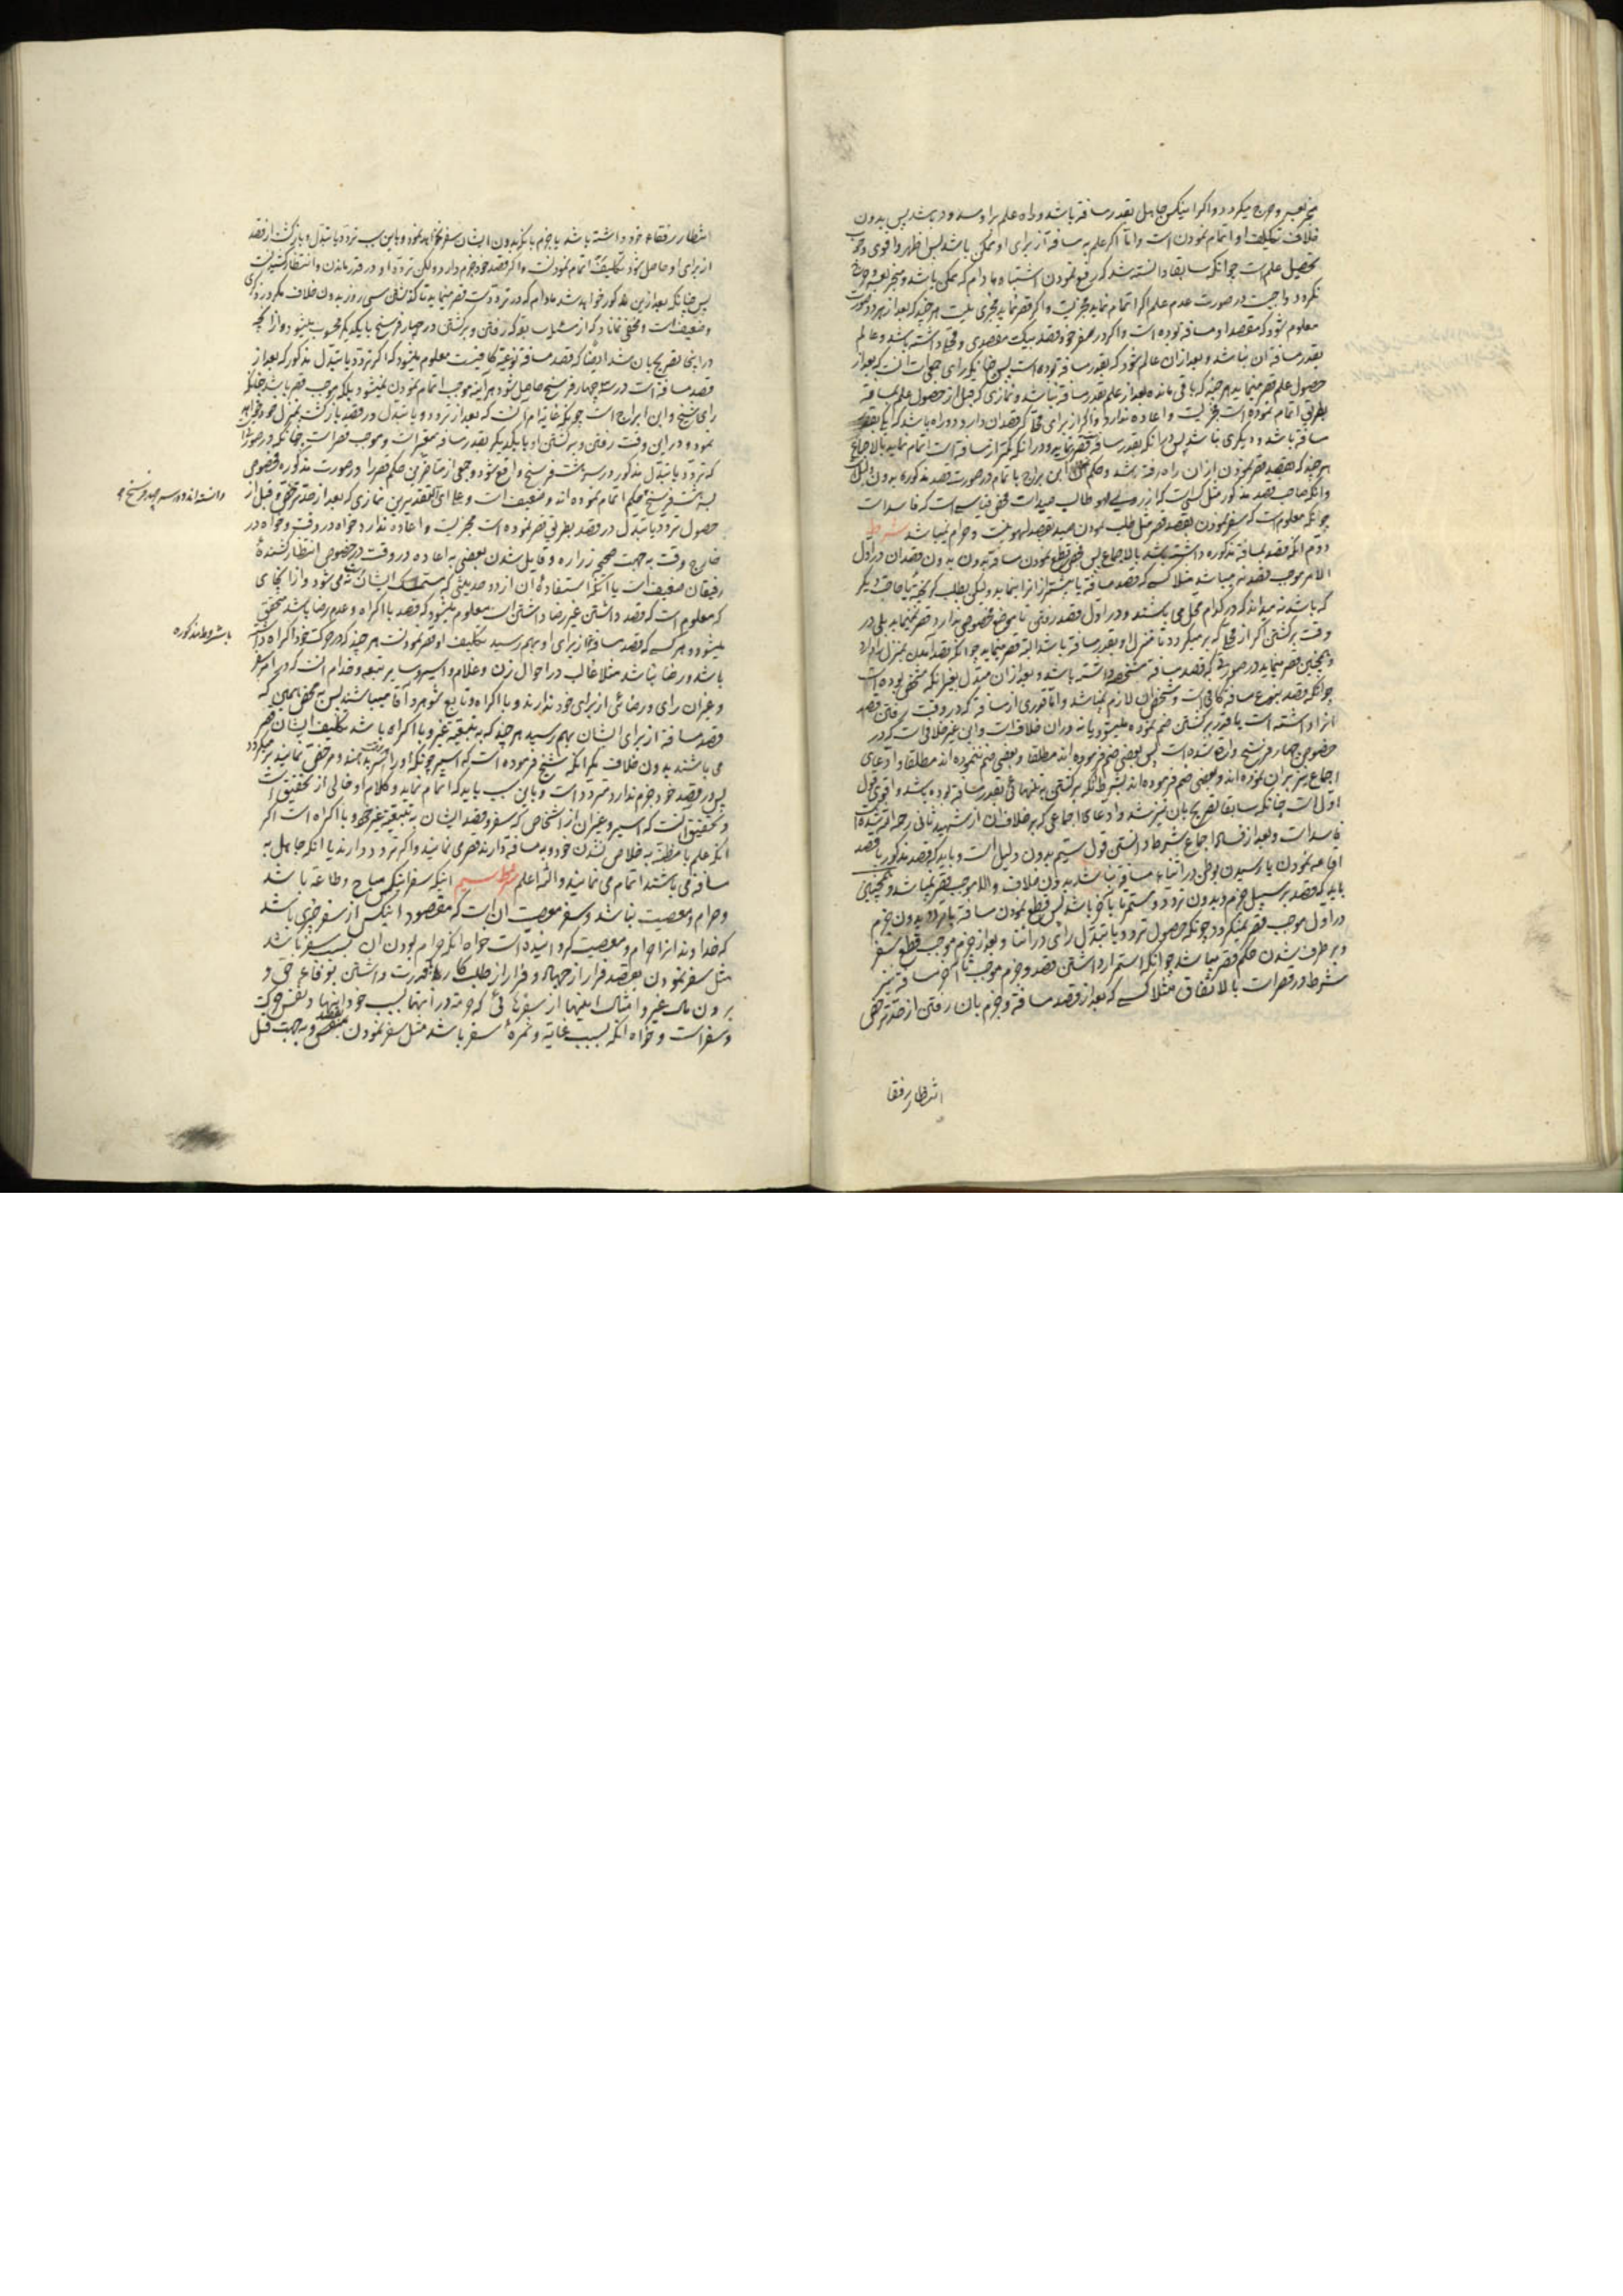 منجر بعسر و حرج میگردد و اگر اینکس جاهل بقدر مسافة باشد و راه علم براو مسدود باشد پس بدون
خلاف تکلیف او اتمام نمودن است و امّا اگر علم به مسافة از برای او ممکن باشد پس اظهر و اقوی وجوب
تحصیل علم است چوانکه سابقا دانسته شد که رفع نمودن اشتباه مادام که ممکن باشد و منجر بعسر و حرج
نگردد واجبست در صورت عدم علم اگر اتمام نماید مجزیست و اگر قصر نماید مجزی نیست هر چند که بعد از
معلوم شود که مقصد او مسافة بوده است و اگر در سفر خود قصد یک مقصدی و محلی داشته باشد و عالم
بقدر مسافة آن نباشد و بعد از آن عالم شود که بقدر مسافة بوده است پس
حصول علم قصر مینماید هر چند که باقی مانده بعد از علم بقدر مسافة نباشد و نمازی که قبل از حصول علم بمسافة
بطریق اتمام نموده است مجزیست و اعاده ندارد و اگر از برای محلی که قصد آن دارد دو راه باشد که یکی بقدر
مسافة باشد و دیگری نباشد پس در آنکه بقدر مسافة است قصر نماید و در آنکه کمتر از مسافة است اتمام نماید بالاجماع
هر چند که بقصد قصر نمودن از آن راه رفته باشد و حکم ابن براج باتمام در صورت قصد مذکوره بدون دلیل است
و آنکه صاحب قصد مذکور مثل کسی است که از روی لهو طالب صید است محض قیاسی است که فاسد است
چوانکه معلوم است که سفر نمودن بقصد قصر مثل طلب نمودن صید بقصد لهو نیست و حرام نمیباشد شرط
دوم آنکه قصد بمسافة مذکوره داشته باشد بالاجماع پس محض قطع نمودن مسافة بدون قصد آن در اول
الامر موجب قصر نمیباشد مثلا کسی که قصد مسافة یا بیشتر از آنرا بنماید ولیکن بطلب گریخته یا حاجت دیگر
که باشد نمیداند که در کدام محل می باشند و در اول قصد رفتن تا موضع مخصوصی ندارد قصر نمینماید بلی در
وقت برگشتن اگر از محلی که برمیگردد تا منزل او بقدر مسافة باشد البته قصر مینماید چوانکه قصد آمدن بمنزل دارد
و همچنین قصر مینماید در صورتی که قصد مسافة مشخصه داشته باشد و بعد از آن مبدل بغیر آنکه مشخص بوده است
چوانکه قصد بنوع مسافة کافی است و شخص آن لازم نمیباشد و امّا قدری از مسافة که در وقت رفتن قصد
آنرا داشته است یا قدر برگشتن ضم نموده میشود یا نه در آن خلاف است و این غیر خلافی است که در
خصوص چهار فرسخ وارد شده است پس بعضی ضم فرموده اند مطلقا و بعضی ضم ننموده اند مطلقا و ادعای
اجماع نیز بر آن نموده اند و بعضی ضم فرموده اند بشرط آنکه برگشتن به تنهائی بقدر مسافة بوده باشد و اقوی قول
اول است چنانکه سابقا تصریح بآن نیز شد و ادعای اجماعی که بر خلاف آن از شهید ثانی رحمه الله شده است
فاسد است و بعد از فساد اجماع شرط دانستن قول سیّم بدون دلیل است و باید که قصد مذکور با قصد
اقامه نمودن یا رسیدن بوطن در اثناء مسافة نباشد بدون خلاف و الا موجب قصر نمیباشد و همچنین
باید که قصد بر سبیل جزم و بدون تردد و مستمر تا بآخر باشد پس قطع نمودن مسافة با تردد و بدون جزم
در اول موجب قصر نمیگردد چونکه حصول تردد و یا تبدّل رأی در اثنا و بعد از جزم موجب قطع سفر
و برطرف شدن حکم قصر میباشد چوانکه استمرار داشتن قصد و جزم موجب تا آخر مسافة نیز
شرط در قصر است بالاتفاق مثلا کسی که بعد از قصد مسافة و جزم بآن رفتن از حدّ ترخّص
انتظار رفقا
انتظار رفقاء خود داشته باشد یا جزم باینکه بدون ایشان سفر نخواهد نمود و باین سبب تردد یا تبدّل و بازگشت از قصد
از برای او حاصل شود تکلیف اتمام نمودنست و اگر قصد خود جزم دارد ولکن تردد او در قدر ماندن و انتظار کشیدنست
پس چنانکه بعد از این مذکور خواهد شد مادام که در تردد است قصر مینماید تا گذشتن سی روز بدون خلاف
و ضعیف است و مخفی نماند که از مسئله سابقه که رفتن و برگشتن در چهار فرسخ با یکدیگر محسوب میشود و از آنچه
در اینجا تصریح بآن شد ایضا که قصد مسافة نوعیّه کافیست معلوم میشود که اگر تردد یا تبدّل مذکور که بعد از
قصد مسافة است در سر چهار فرسخ حاصل شود هر آینه موجب اتمام نمودن نمیشود بلکه موجب قصر باشد چنانکه
رأی شیخ و ابن براج است چونکه غایة امر آنست که بعد از تردد و یا تبدّل در قصد بازگشت بمنزل خود خواهد
نمود و در این وقت رفتن و برگشتن او با یکدیگر بقدر مسافة معتبر است و موجب قصر است چنانکه در صورت
که تردد یا تبدّل مذکور در سر هشت فرسخ واقع شود و جمعی از متأخرین حکم قصر را در صورت مذکوره مخصوص
بسر هشت فرسخ حکم اتمام نموده اند و ضعیف است و علی ای التقدیرین نمازی که بعد از حد ترخص و قبل از
حصول تردد یا تبدّل در قصد بطریق قصر نموده است مجزیست و اعاده ندارد خواه در وقت و خواه در
خارج وقت به جهت صحیح زراره و قایل شدن بعضی به اعاده در وقت در خصوص انتظار کشنده
رفیقان ضعیف است یا آنکه استفاده آن از دو حدیثی که متمسک ایشانست نمی شود و از آنجائی
که معلوم است که قصد داشتن غیر رضا داشتن است معلوم میشود که قصد با اکراه و عدم رضا باشد متحقق
میشود و هر کسی که قصد مسافة از برای او بهم رسید تکلیف او قصر نمودنست هر چند که در حرکت خود اکراه داشته
باشد و رضا نباشد مثلا غالب در احوال زن و غلام و اسیر و سایر تبعه و خدّام آنست که در امر سفر
و غیر آن رای و رضائی از برای خود ندارند و با اکراه و تابع شوهر و آقا میباشند پس به محض همین که
قصد مسافة از برای ایشان بهم رسید هر چند که به تبعیّة غیر و با اکراه باشد تکلیف ایشان قصر
می باشند بدون خلاف مگر آنکه شیخ فرموده است که اسیر چونکه اگر او را سر بدهند و مرخص نمایند برمیگردد
پس در قصد خود جزم ندارد متردد است و باین سبب باید که اتمام نماید و کلام او خالی از تحقیق است
و تحقیق آنست که اسیر و غیر آن از اشخاص که سفر و قصد ایشان به تبعیّة غیر خود و با اکراه است اگر
آنکه علم یا مظنّه به خلاص نشدن خود و به مسافة دارند قصر می نمایند و اگر تردد دارند یا آنکه جاهل به
مسافة می باشند اتمام می نمایند و الله اعلم شرط سیّم اینکه سفر اینکس مباح و طاعة باشد
و حرام و معصیت نباشد و سفر معصیت آن است که مقصود اینکس از سفر چیزی باشد
که خداوند آنرا حرام و معصیت گردانیده است خواه آنکه حرام بودن آن بسبب سفر باشد
مثل سفر نمودن بقصد فرار از جهاد و فرار از طلب کار با قدرت داشتن بوفاء حق و
بردن مال غیر و امثال اینها از سفرهائی که حرمة در آنهما بسبب خود اینها و نفس حرکت
و سفر است و خواه آنکه بسبب غایة و ثمرهٔ سفر باشد مثل سفر نمودن بقصد و به جهت قتل
دانسته اند و در سر چهار فرسخ
با شروط مذکوره